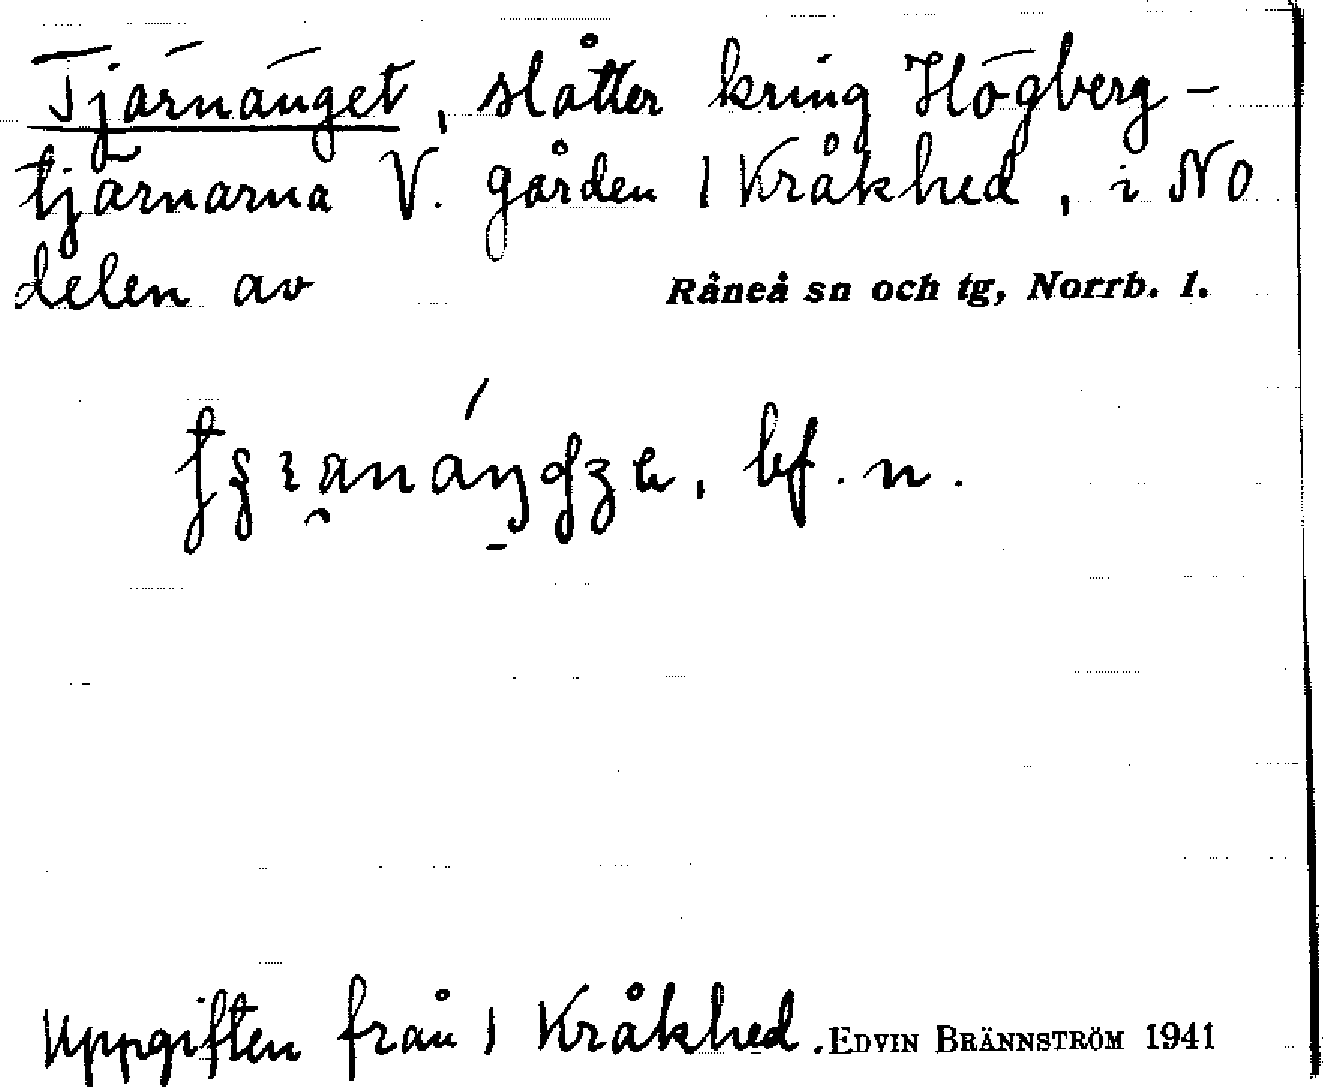 Tjärnänget, slåtter kring Högberg-
tjärnarna V. gården 1 Kråkhed, i NO
delen av Råneå sn och tg, Norrb. l.
bf. n.
Uppgiften från 1 Kråkhed. EDVIN BRÄNNSTRÖM 1941